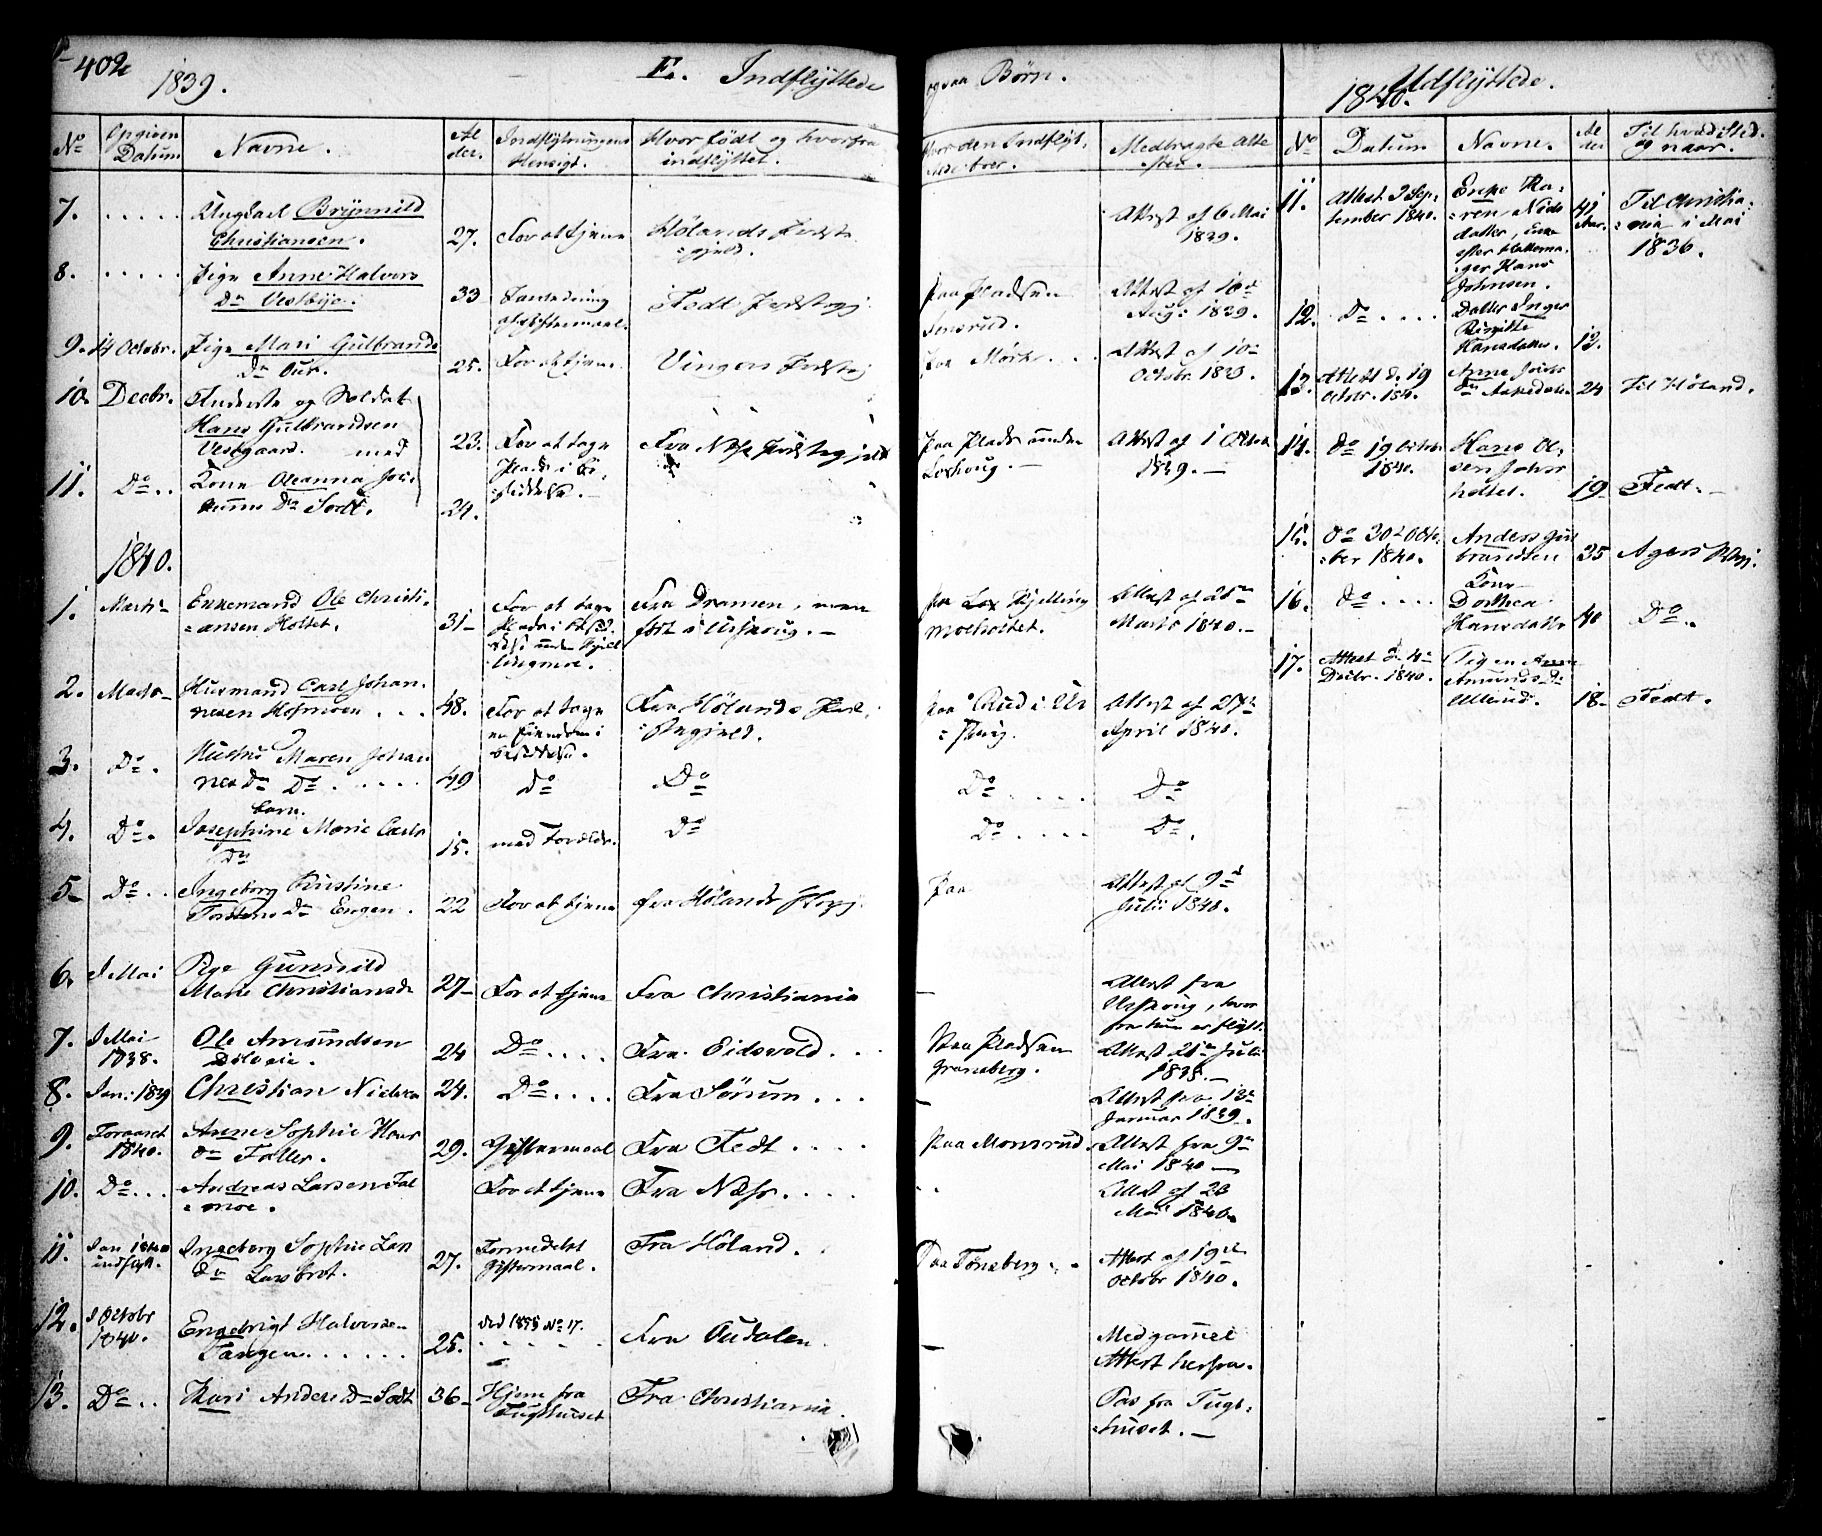 402
1839.
E. Indflyttede
ogsaa Børn.
1840. Udflyttede.
No
Opgiven Datum
Navne.
Alder.
Indflytningens Hensigt.
Hvor født og hvorfra indflyttet.
Hvor den Indflyt-
Medbragte Attester.
No
Datum
Navne.
Alder
Til hvad Sted og naar.
7. . . . . . Ungkarl Brynnild
Christiansen. 27. For at tjene Hølands Præste-
gjeld. Attest af 6 Mai
1839.
8. . . . . . Pige Anne Halvors
Dr Vestbye. 33 Fedt Præstegj
paa Pladsen Attest af 10de
Aug: 1839.
9. 14 Octobr. Pige Mari Gulbrands
Dr 25. For at tjene. Vinger Præstegj
paa Mørk . . Attest af 10de
Octobr 1839.
10. Decbr. Inderste og Soldat
Hans Gulbrandsen
Vestgaard. med 23. For at tage
Plads i Be-
siddelse. Fra Næs Præstegjeld
paa Plads under Attest af 1 Octobr
1839.
11. Do . . Kone Oleanna Joh-
Dr Sodt. 24.
1840.
1. Marts Enkemand Ole Christi-
ansen Holtet. 31 For at tage
Plads i
under Kjel-
lingmoe. Fra Dramen, men
født i Urskoug.
paa Kjelling
moeholtet. Attest af
Marts 1840.
2. Marts Husmand Carl Johan-
nesen Hofmoen . . . 48. For at tage
en Eiendom i
besiddelse. Fra Hølands Præ-
stegjeld.
paa Rud i Ur-
skoug. Attest af 27de
April 1840.
3. Do. Hustru Maren Johan
nes Dr Do. . . . . 49 Do Do
Do . . . . Do
4. Do. barn.
Josephine Marie Carls
Dr 15. med Forældr. Do
Do . . . . Do.
5 Do . . Ingeborg Kristine
Torstens Dr Engen. 22 For at tjene fra Hølands Prgj.
paa Attest af 9de
Julii 1840.
6. I Mai Pige Gunnild
Marie Christiansdr 27 For at tjene Fra Christiania
Attest fra
Urskoug, hvor
fra hun er flytt.
7. I Mai
1838. Ole Amundsen
24 Do . . . . Fra Eidsvold . . .
Paa Pladsen
Graneberg. Attest 21de Juli
1838.
8. Jan: 1839 Christian Nielsen 24. Do . . . . Fra Sørum . . .
Attest fra 12te
Januar 1839.
9. Foraaret
1840. Anne Sophie Hans
dr Toller. 29. Giftermaal Fra Fedt . . . .
paa Monsrud. Attest fra 9de
Mai 1840
10. Do . . . Andreas Larsen Fal-
moe. For at tjene Fra Næs. . . . .
Attest af 26
Mai 1840.
11. Jan 1840
indflyt. Ingeborg Sophie Lars
dr Larsbrot. 27. Formedelst
Giftermaal. Fra Høland.
Paa Tønsberg . . Attest af 19de
October 1840.
12. I Octobr
1840. Engebrigt Halvorsen
Tangen. . . . . . 25. Ved 1838 No 17. Fra Oudalen.
Med gammel
Attest herfra.
13. Do . . Kari Anders Dr Sodt 36 Hjem fra
Tugthuset Fra Christiania.
Pas fra Tugt-
huset.
11. Attest 3 Sep-
tember 1840. Enke Ka-
ren Niels
datter, enke
efter
Hans
Johnsen. 41
Aar. Til Christia-
nia i Mai
1836.
12. Do . . . . Datter Inger
Birgitte
Hansdatter. 13.
13. Attest d. 19
Octobr. 1840. Anne
Dr 24 Til Høland.
14. Do 19 Octobr
1840. Hans Ol-
sen
holtet. 19 Fedt.
15. Do 30te Octo-
ber 1840. Anders Gul
brandsen 35 Agers Prgj.
16. Do . . . . Kone
Dorthea
Hansdatter 40 Do.
17. Attest d. 4de
Decbr. 1840. Pigen Anne
Amunds Dr
Ullerud. 18 Fedt.